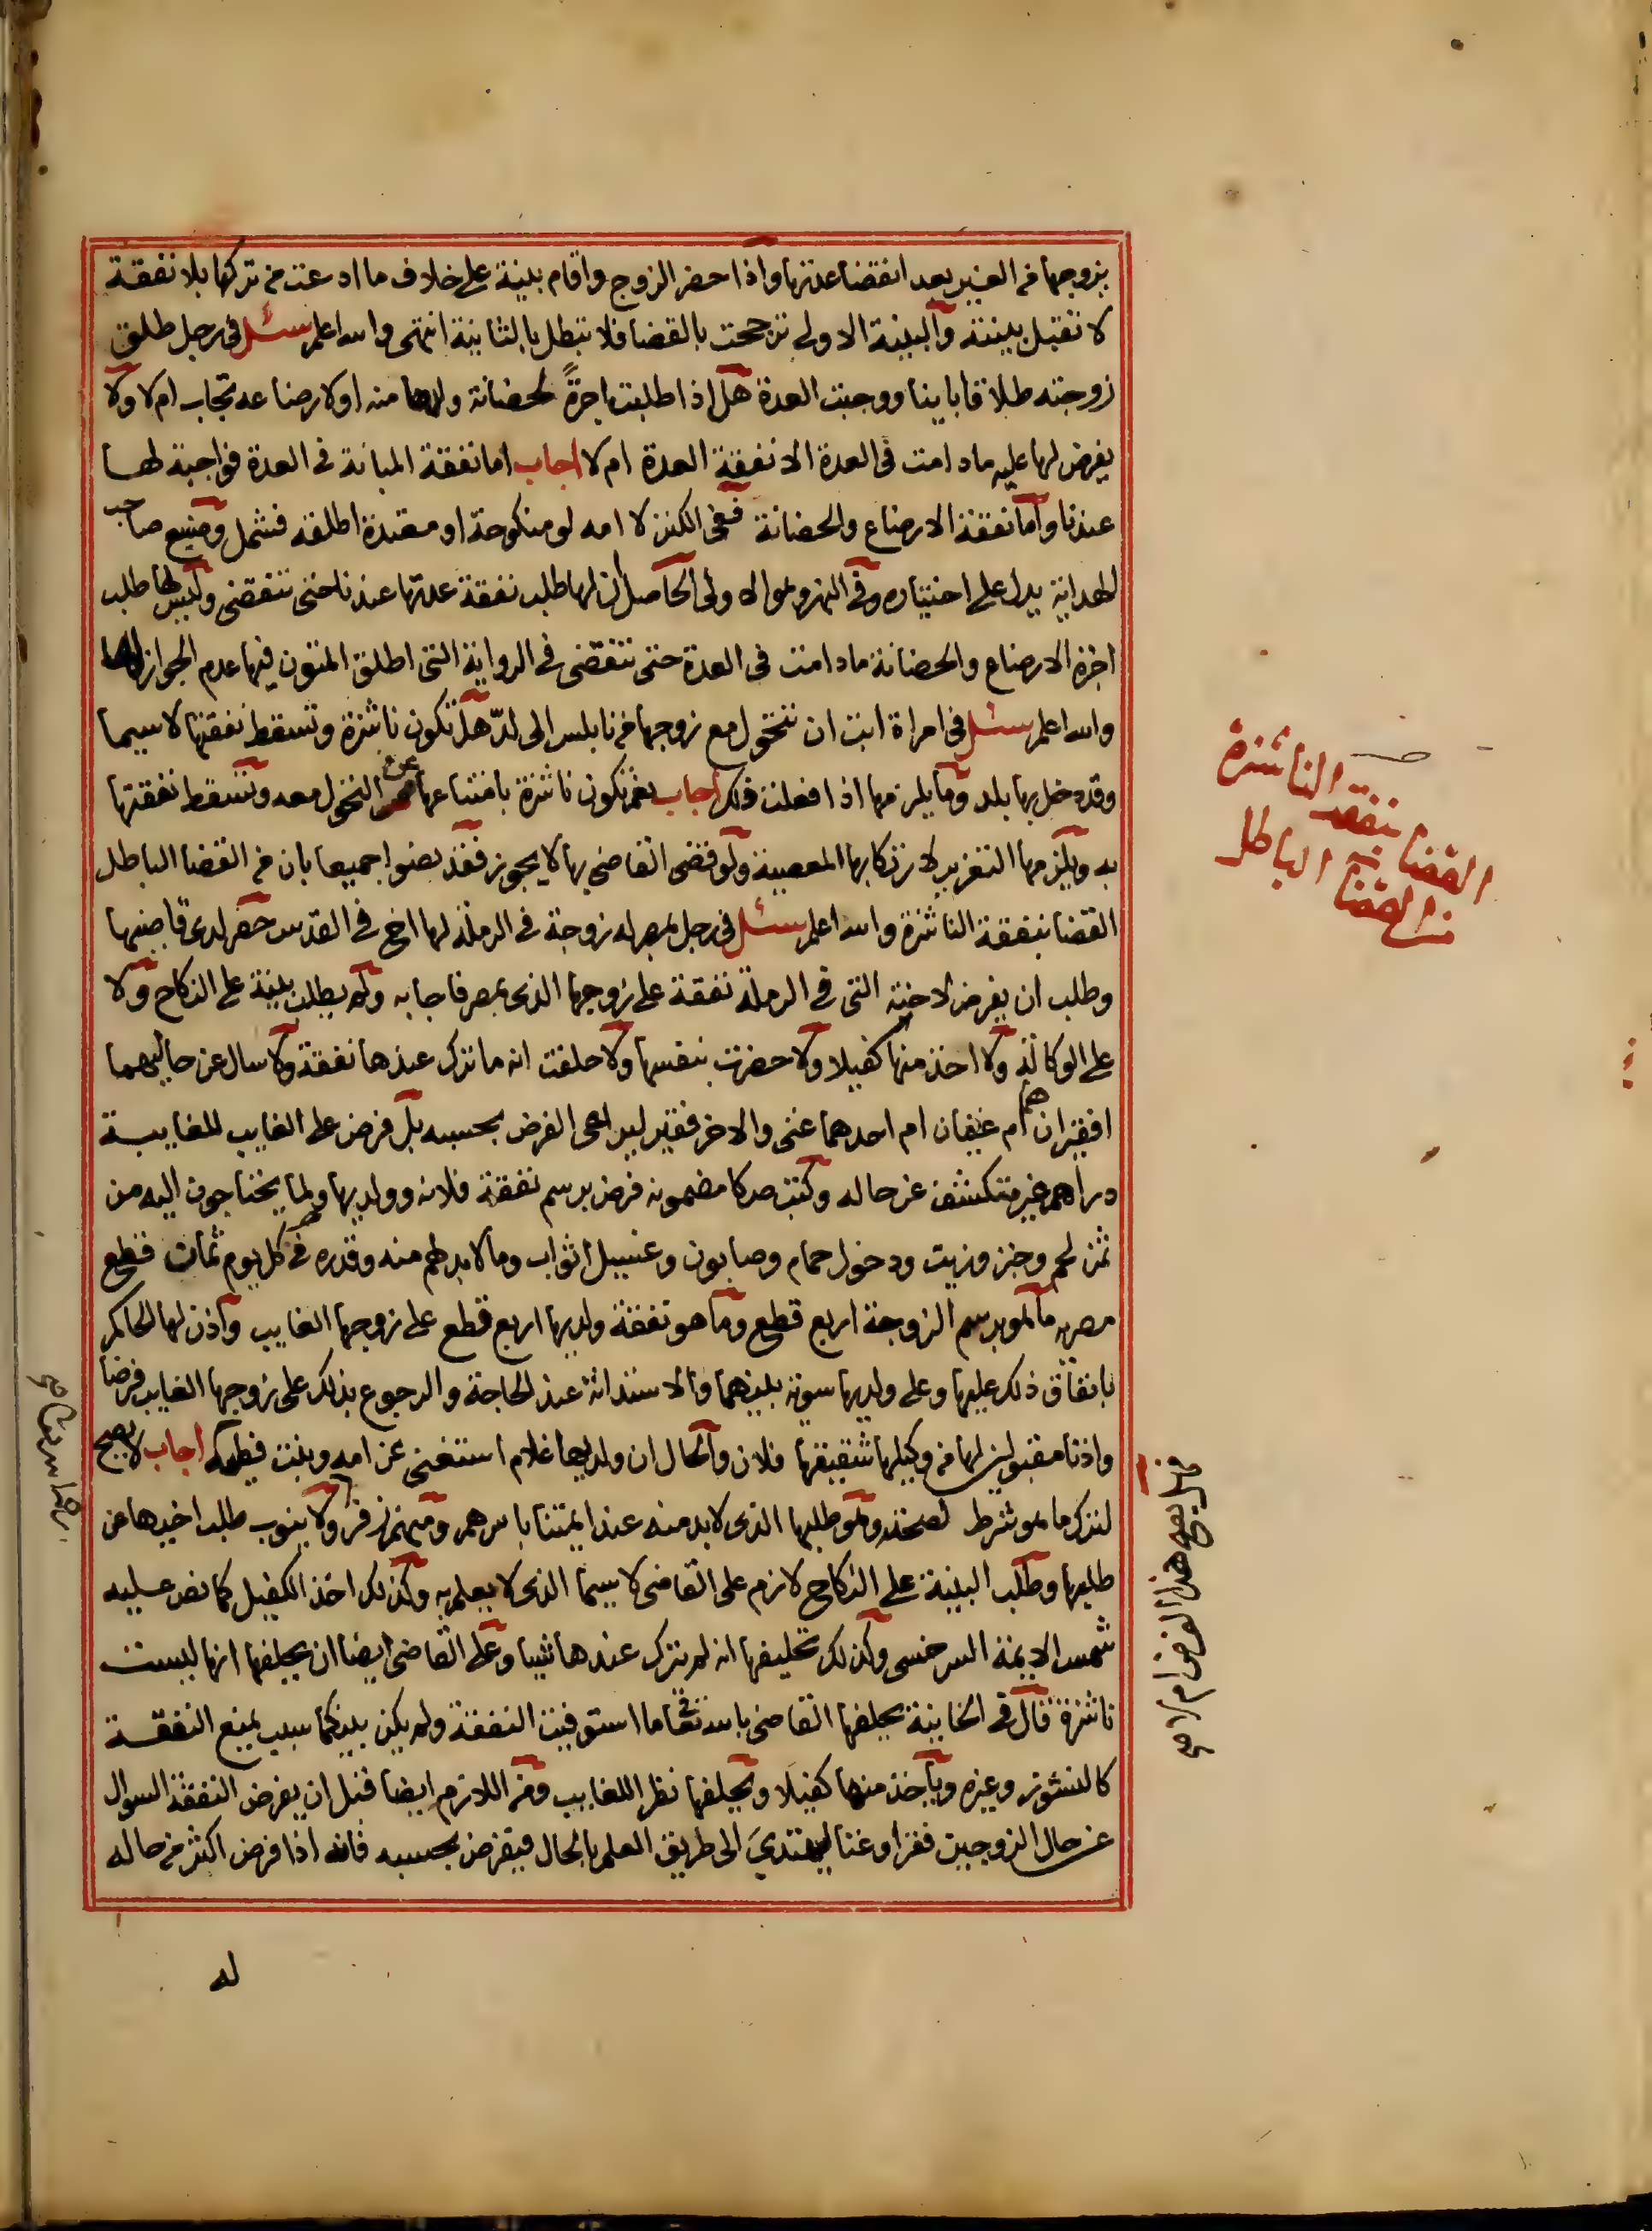 يزوجها من الغير بعد انقضا عدتها واذا حضر الزوج واقام بينة على خلاف ما ادعت من تركها بلا نفقة
لا تقبل بينته والبينة الاولى ترجحت بالقضا فلا تبطل بالثانية انتهى والله اعلم سئل في رجل طلق
زوجته طلاقا باينا ووجبت العدة هل اذا طلبت اجرة لحضانة ولدها منه او لارضاعه تجاب ام لا ولا
يفرض لها عليه مادامت في العدة الا نفقة العدة ام لا اجاب اما نفقة المبانة في العدة فواجبة لها
عندنا واما نفقة الارضاع والحضانة ففي الكنز لا امه لو منكوحة او معتدة اطلقه فشمل وصنيع صاحب
الهداية يدل على اختياره وفي النهر وهو الاولى الحاصل ان لها طلب نفقة عدتها عندنا حتى تنقضي وليس لها طلب
اجرة الارضاع والحضانة مادامت في العدة حتى تنقضي في الرواية التي اطلق المتون فيها عدم الجواز لها
والله اعلم سئل في امراة ابت ان تتحول مع زوجها من نابلس الى لد هل تكون ناشزة وتسقط نفقتها لا سيما
وقد دخل بها بلد وما يلزمها اذا فعلت ذلك اجاب نعم تكون ناشزة بامتناعها عن التحول معه وتسقط نفقتها
به ويلزمها التعزير لارتكابها المعصية ولو قضى القاضي بها لا يجوز فقد نصوا جميعا بان من القضا الباطل
القضا بنفقة الناشزة والله اعلم سئل في رجل بمصر له زوجة في الرملة لها اخ في القدس حضر لدى قاضيها
وطلب ان يفرض لاخته التي في الرملة نفقة على زوجها الذي بمصر فاجابه ولم يطلب بينة على النكاح ولا
على الوكالة ولا اخذ منها كفيلا ولا حضرت بنفسها ولا حلفت انه ما ترك عندها نفقة ولا سال عن حاليهما
افقيران هما ام غنيان ام احدهما غني والاخر فقير ليراعى الفرض بحسبه بل فرض على الغايب للغايبة
دراهم غير متكشف عن حاله وكتب صكا مضمونه فرض برسم نفقة فلانه وولديها ولما يحتاجون اليه من
ثمن لحم وخبز وزيت ودخول حمام وصابون وغسيل اثواب وما لا بد لهم منه وقدره في كل يوم ثمان قطع
مصرية ما هو برسم الزوجة اربع قطع وما هو نفقة ولديها اربع قطع على زوجها الغايب واذن لها الحاكم
بانفاق ذلك عليها وعلى ولديها سوية بينهما والاستدانة عند الحاجة والرجوع بذلك على زوجها الغايب فرضا
واذنا مقبولين لها من وكيلها شقيقها فلان والحال ان ولديها غلام استغنى عن امه وبنت فطيمه اجاب لا يصح
لترك ما هو شرط لصحته وهو طلبها الذي لا بد منه عند ايمتنا باسرهم ومنهم زفر ولا ينوب طلب اخيها عن
طلبها وطلب البينة على النكاح لازم على القاضي لا سيما الذي لا يعلم به وكذلك اخذ الكفيل كما نص عليه
شمس الايمة السرخسي وكذلك تحليفها انه لم يترك عندها شيا وعلى القاضي ايضا ان يحلفها انها ليست
ناشزة قال في الخانية يحلفها القاضي بالله تعا ما استوفيت النفقة ولم يكن بينكما سبب يمنع النفقة
كالنشوز وغيره وياخذ منها كفيلا ويحلفها نظرا للغايب ومن اللازم ايضا قبل ان يفرض النفقة السوال
عن حال الزوجين فقرا وغنا ليهتدي الى طريق العلم بالحال فيفرض بحسبه فانه اذا فرض اكثر من حاله
له
القضا بنفقة الناشزة
من القضا الباطل
هل يصح هذا الفرض ام لا